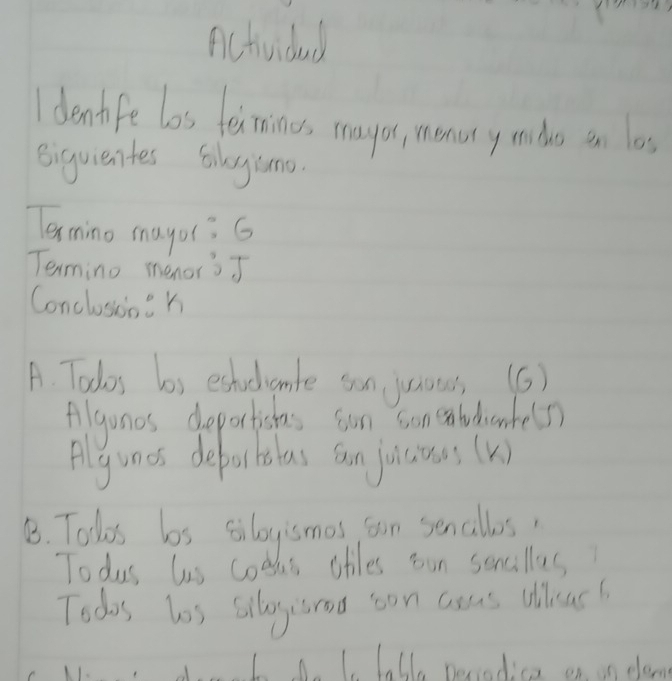 Actividad
Identife los términos mayor, menor y midio en los
siguientes silogismo.
Termino mayor: G
Termino menor: J
Conclusión: K
A. Todos los estudiante son juiciosos (G)
Algunos deportistas son son estudiante (J)
Algunos deportistas son juiciosos (K)
B. Todos los silogismos son sencillos
Todas las cosas utiles son sencillas
Todos los silogismos son
la tabla periodica es un